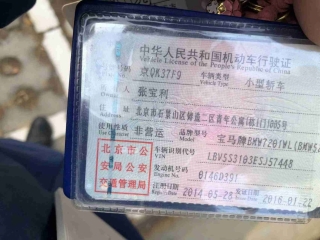 中华人民共和国机动车行驶证
Vehicle License of the People's Republic of China
号牌号码 京QK37F9 车辆类型 小型轿车
Plate No. Vehicle Type
所有人 张宝利
Owner
住址 北京市石景山区
Address
使用性质 非营运 品牌型号 宝马牌BMW7201WL(BMW
Use Character Model
北京市公安局公安交通管理局
车辆识别代号 LBV5S3103ESJ57448
VIN
发动机号码
Engine No.
注册日期 2014-05-28 2016-01-22